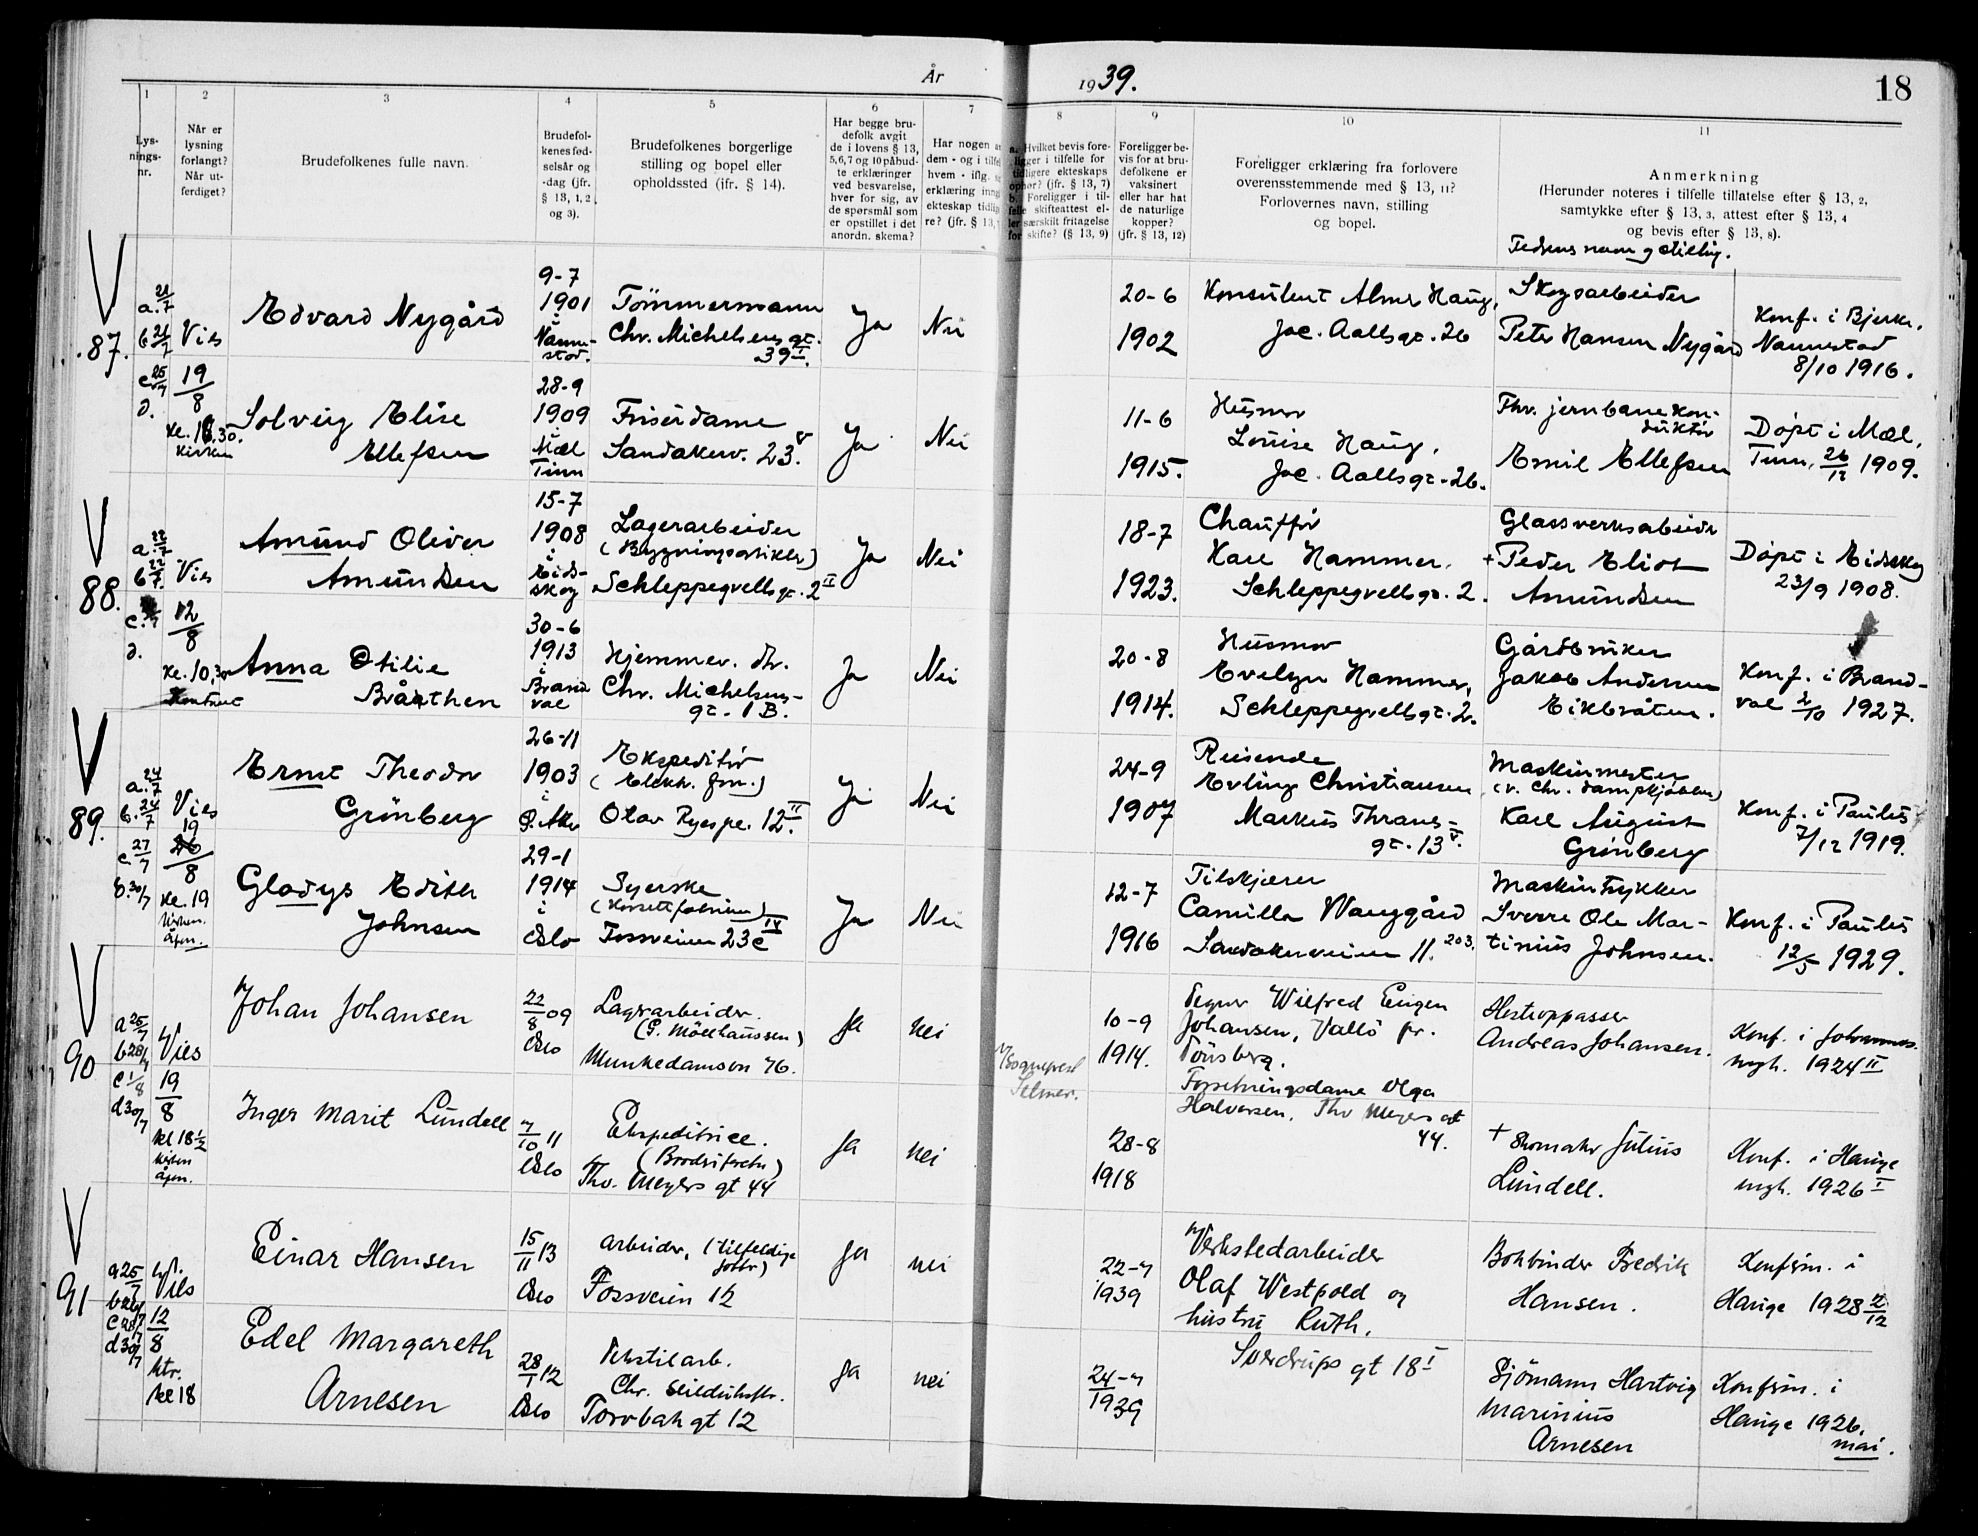 År 1939.
18
1
2
3
4
5
6
7
8
9
10
11
Lys-
nings-
nr.
Når er
lysning
forlangt?
Når ut-
ferdiget?
Brudefolkenes fulle navn.
Brudefol-
kenes fød-
selsår og
-dag (jfr.
§ 13, 1, 2
og 3).
Brudefolkenes borgerlige
stilling og bopel eller
opholdssted (ifr. § 14).
Har begge bru-
defolk avgit
de i lovens § 13,
5,6,7 og 10 påbud-
te erklæringer
ved besvarelse,
hver for sig, av
de spørsmål som
er opstillet i det
anordn. skema?
Har nogen a
dem - og i tilfe
hvem - iflg.
erklæring inng
ekteskap tidlig
re? (jfr. § 13,
a. Hvilket bevis fore-
ligger i tilfelle for
tidligere ekteskaps
ophør? (jfr. § 13, 7)
b. Foreligger i til-
felle skifteattest el-
ler særskilt fritagelse
for skifte? (§ 13, 9)
Foreligger be-
vis for at bru-
defolkene er
vaksinert
eller har hat
de naturlige
kopper?
(jfr. § 13, 12)
Foreligger erklæring fra forlovere
overensstemmende med § 13, 11?
Forlovernes navn, stilling
og bopel.
Anmerkning
(Herunder noteres i tilfelle tillatelse efter § 13, 2,
samtykke efter § 13, 3, attest efter § 13, 4
og bevis efter § 13, 8).
Fedrens navn og stilling.
87.
a. 21/7
b 21/7
c 25/7
d.
Vies
19/8
kl. 18,30.
Kirken
Edvard Nygård
9-7
1901
i
Nanne-
stad.
Tömmermann
Chr. Michelsens gt.
39 I.
Ja
Nei
20-6
1902
Konsulent Almer Haug,
Jac. Aallsgt. 26
Skogsarbeider
Peter Hansen Nygård
Konf. i Bjerke,
Nannestad
8/10 1916.
Solveig Elise
Ellefsen
28-9
1909
i
Mæl
Tinn
Frisérdame
Sandakerv. 23 V.
Ja
Nei
11-6
1915.
Husmor
Louise Haug,
Jac. Aallsgt. 26.
Thv. jernbanekon-
duktör
Emil Ellefsen
Döpt i Mæl,
Tinn, 26/12 1909.
88.
a. 22/7
b 22/7
c.
d.
Vies
12/8
kl. 10,30
Kontoret
Amund Oliver
Amundsen
15-7
1908
i
Eids-
skog
Lagerarbeider
(Bygningsartikler)
Schleppegrellsgt. 2 II
Ja
Nei
18-7
1923.
Chaufför
Karl Hammer.
Schleppegrellsgt. 2.
Glassverksarbeider
+ Peder Eliot
Amundsen
Döpt i Eidskog
23/9 1908.
Anna Otilie
Bråthen
30-6
1913
i
Brand
val
Hjemmev. dtr.
Chr. Michelsens-
gt. 1 B.
Ja
Nei
20-8
1914.
Husmor
Evelyn Hammer,
Schleppegrellsgt. 2.
Gårdbruker
Jakob Andersen
Eikbråten.
Konf. i Brand-
val 2/10 1927.
89.
a. 24/7
b. 24/7
c 27/7
d. 30/7
Vies
19
26/8
kl. 19
Kirken.
Åpen.
Ernst Theodor
Grönberg
26-11
1903
i
Ö. Aker
Ekspeditör
(Elektr. forr.)
Olav Ryespl. 12 II.
Ja
Nei
24-9
1907
Reisende
Erling Christiansen
Markus Thranes-
gt. 13 V.
Maskinmester
(v. Chr. dampkjökken)
Karl August
Grönberg
Konf. i Paulus
7/12 1919.
Gladys Edith
Johnsen
29-1
1914
i
Oslo
Syerske
(Korsettfabrikk)
Fossveien 23 c IV
Ja
Nei
12-7
1916
Tilskjærer
Camilla Wangård
Sandakerveien 11. 203.
Maskintrykker
Sverre Ole Mar-
tinius Johnsen.
Konf. i Paulus
12/5 1929.
90
a 25/7
b 28/7
c 1/8
d 30/7
Vies
19/8
kl 18 1/2
Kirken
åpen.
Johan Johansen
22/8 09
Oslo
Lagerarbeider.
(P. Möllhaussen)
Munkedamsvn 76.
Ja
nei
V/Sogneprest
Selmer.
10-9
1914.
Tegner Wilfred Eugen
Johansen, Vallö pr.
Tönsberg.
Hestepasser
Andreas Johansen.
Konf. i Johannes
mgh. 1924 II
Inger Marit Lundell
7/10 11
Oslo
Ekspeditrice.
(Brödutsalg)
Thv. Meyers gt 44
Ja
nei
28-8
1918
Forretningsdame Olga
Halvorsen, Thv Meyers gt
44.
+ Skomaker Julius
Lundell.
Konf. i Hauge
mgh. 1926 I
91
a 25/7
b 26/7
c 28/7
d 30/7
Vies
12/8
ktr.
kl 18
Einar Hansen
15/11 13
Oslo
Arbeider, (tilfeldige
jobber)
Fossveien 12
Ja
nei
22-7
1939
Verkstedarbeider
Olaf Westvold og
hustru Ruth,
Sverdrups gt 18 I
Bokbinder Fredrik
Hansen.
Konfirm. i
Hauge 1928 2/12
Edel Margareth
Arnesen
28/1 12
Oslo
Tekstilarb.
Chr. Seildukfbr.
Torvbakgt 12
Ja
nei
24-7
1939
Sjömann Hartvig
Marinius
Arnesen
Konfirm. i
Hauge 1926.
mai.